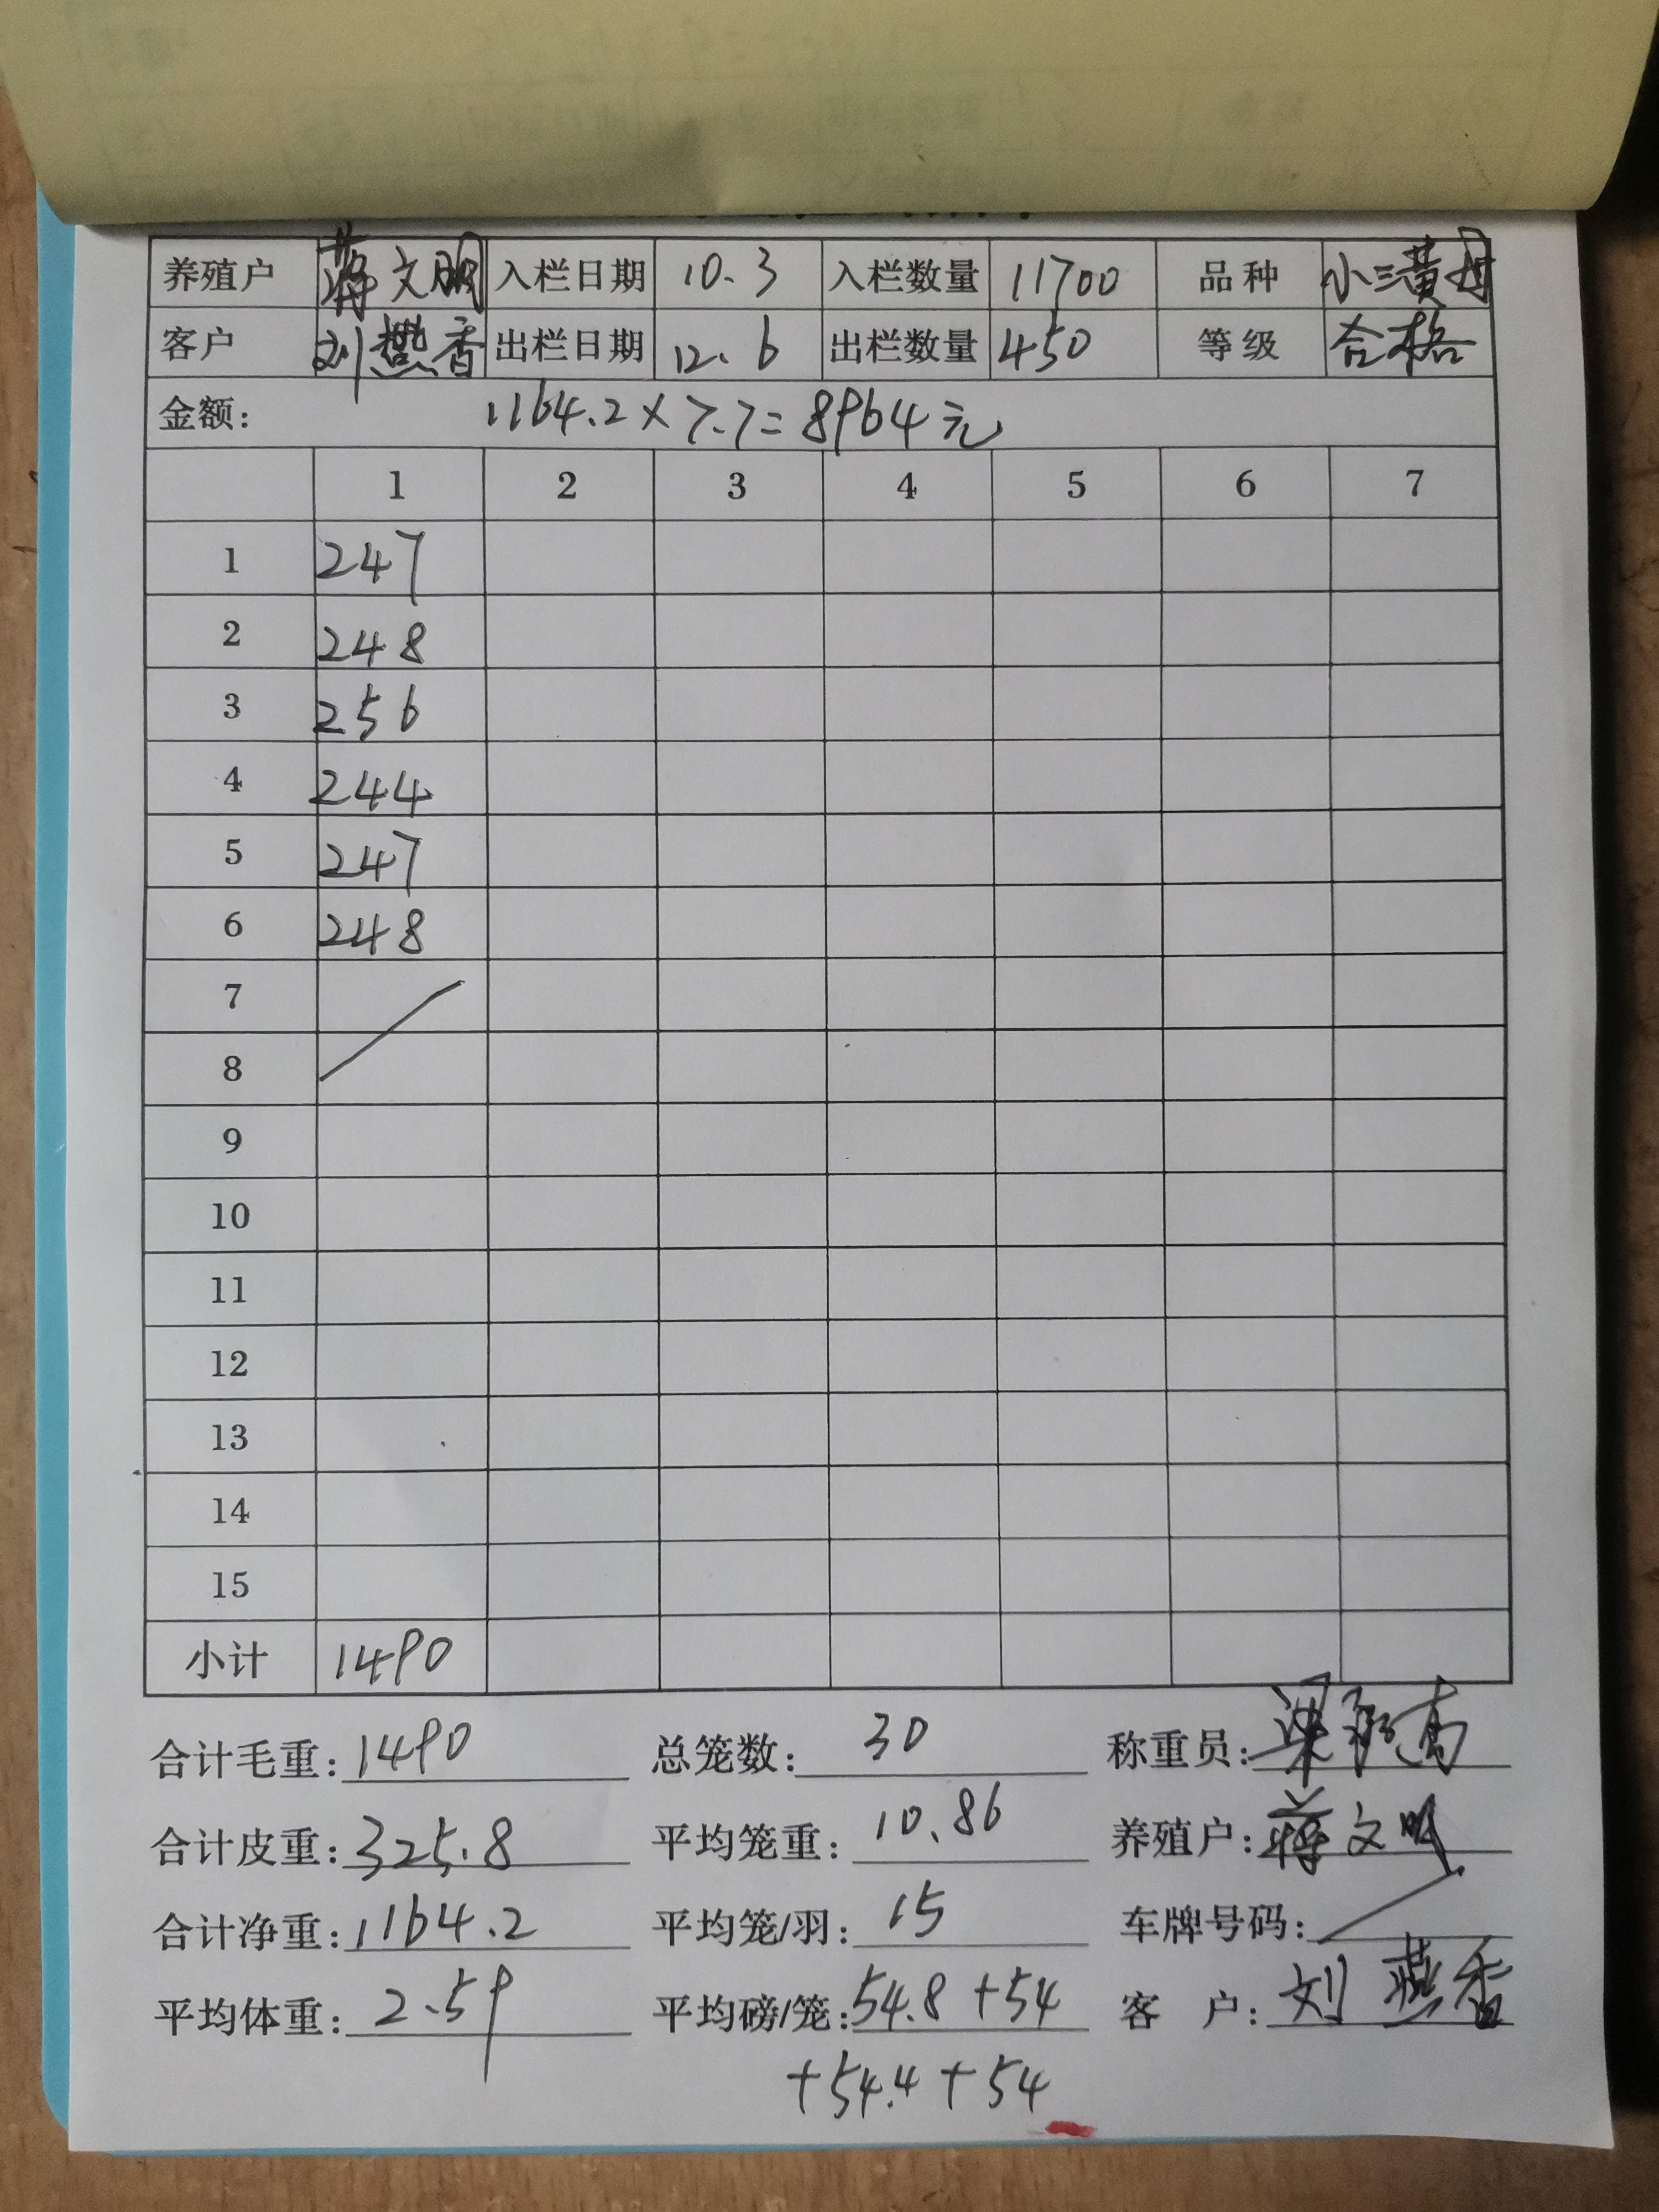 养殖户 蒋文明 入栏日期 10.3 入栏数量 11700 品种 小三黄母
客户 刘燕香 出栏日期 12.6 出栏数量 450 等级 合格
金额: 1164.2×7.7=8964元
1 2 3 4 5 6 7
1 247
2 248
3 256
4 244
5 247
6 248
7
8
9
10
11
12
13
14
15
小计 1490
合计毛重: 1490 总笼数: 30 称重员: 梁
合计皮重: 325.8 平均笼重: 10.86 养殖户: 蒋文明
合计净重: 1164.2 平均笼/羽: 15 车牌号码:
平均体重: 2.59 平均磅/笼: 54.8+54 客户: 刘燕香
+54.4+54